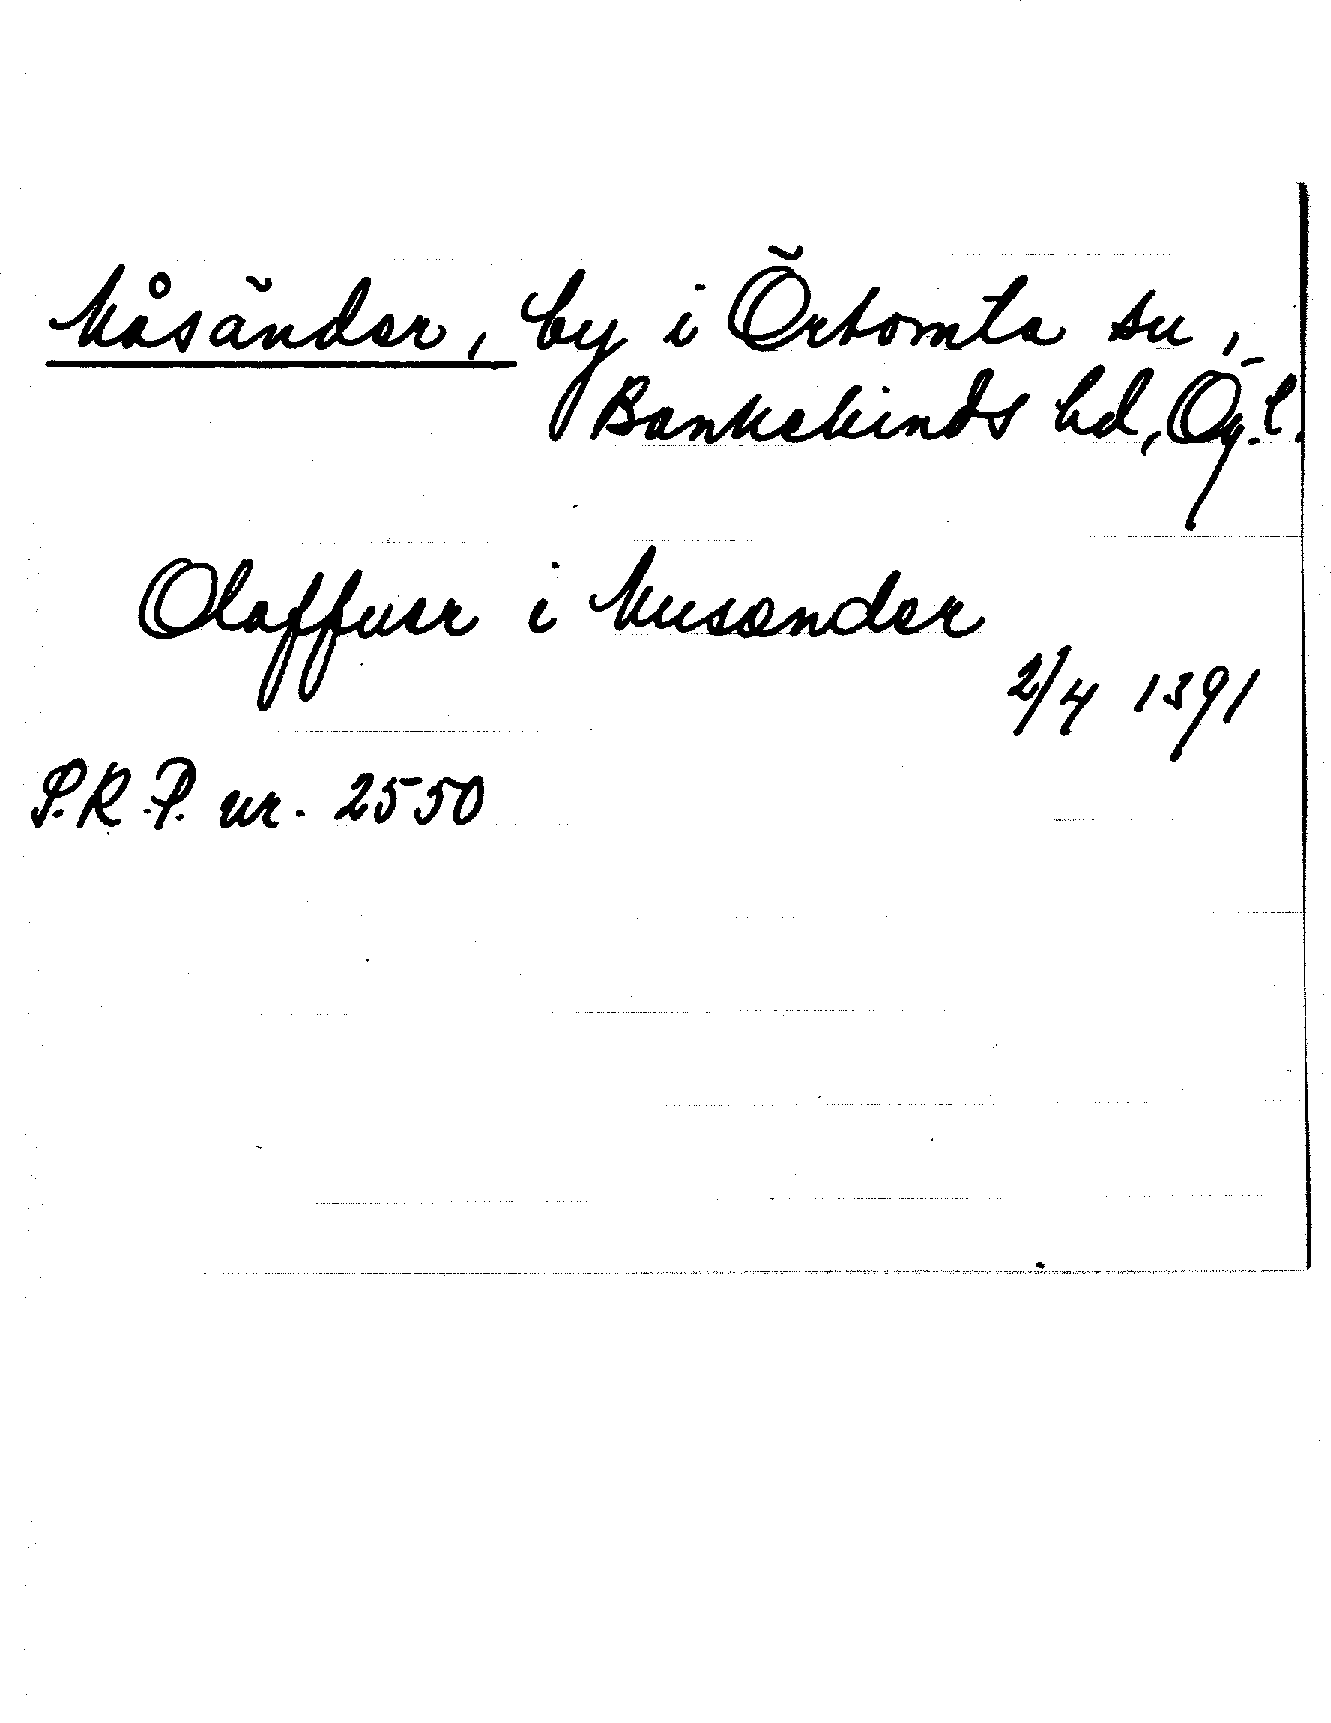 Kåsänder, by i Örtomta sn,
Bankekinds hd, Ög. l.
Olaffuer i Kusander
2/4 1391
P.R.P. nr. 2550